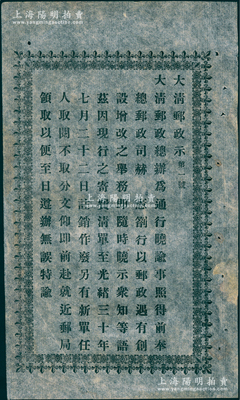 上海陽明拍賣
大淸郵政示第一號
大淸郵政總辦為通行曉諭事照得前奉
總郵政司赫 劄行以郵政遇有創
設增改之舉務即隨時曉示衆知等語
茲因現行之寄 淸單至光緖三十年
七月二十二日 銷作廢另有新單任
人取閱不取分文仰即前赴就近郵局
領取以便至日遵辦無誤特諭
上海陽明拍賣